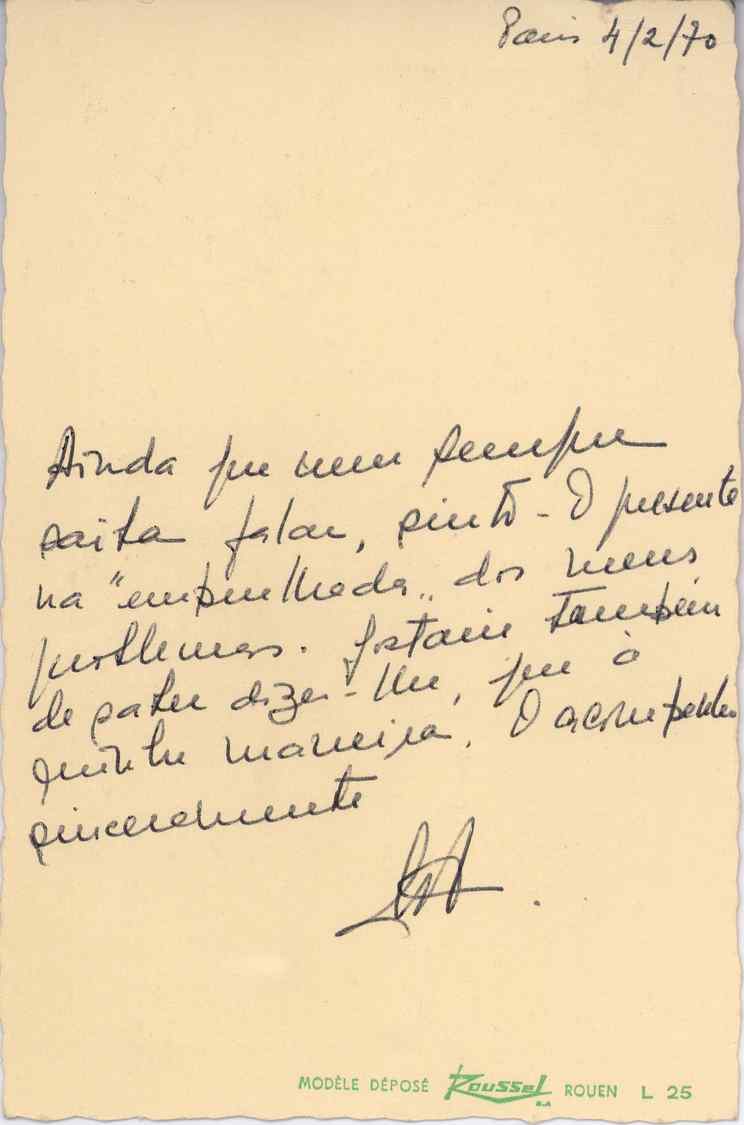 Paris 4/2/70
Ainda que nem sempre
saiba falar, sinto-O presente
na "embrulhada" dos meus
problemas. Gostaria também
de saber dizer-lhe, que à
minha maneira, O acompanho
sinceramente
MODÈLE DÉPOSÉ Roussel S.A ROUEN L 25